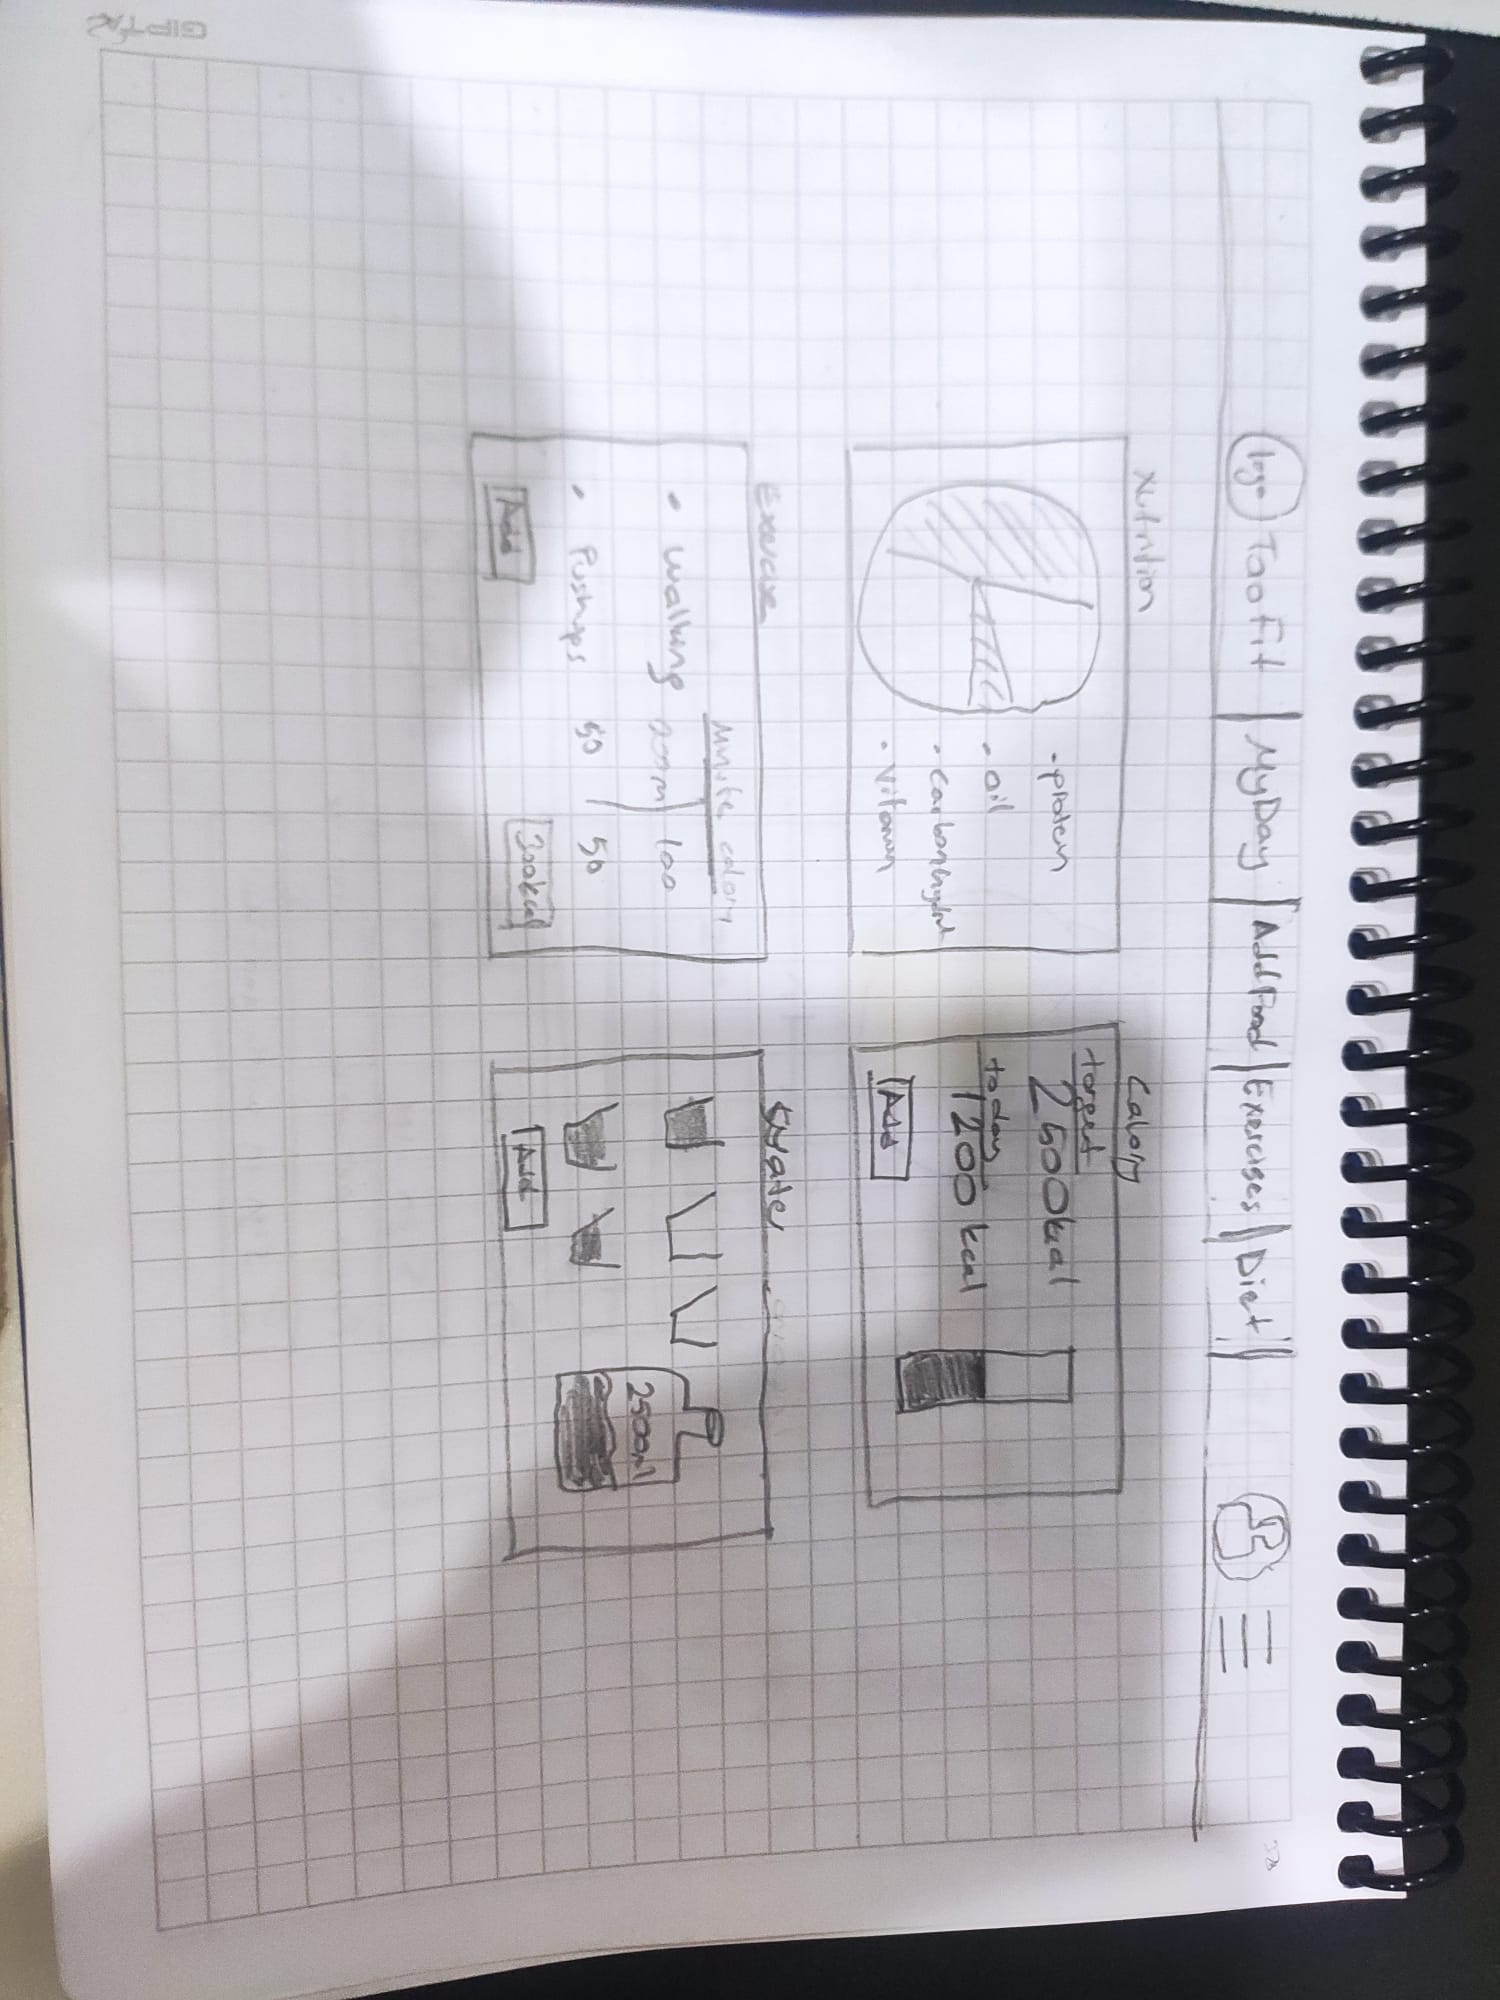 logo TaoFit | MyDay | Add Food | Exercises | Diet
Nutrition
• protein
• oil
• carbonhydrat
• vitamın
Calory
target
2500kcal
today
1200 kcal
Add
Exercise
Minute calory
• walking 100
• Pushups 50 50
Add
300kcal
Water
2500ml
Add
GIPTA